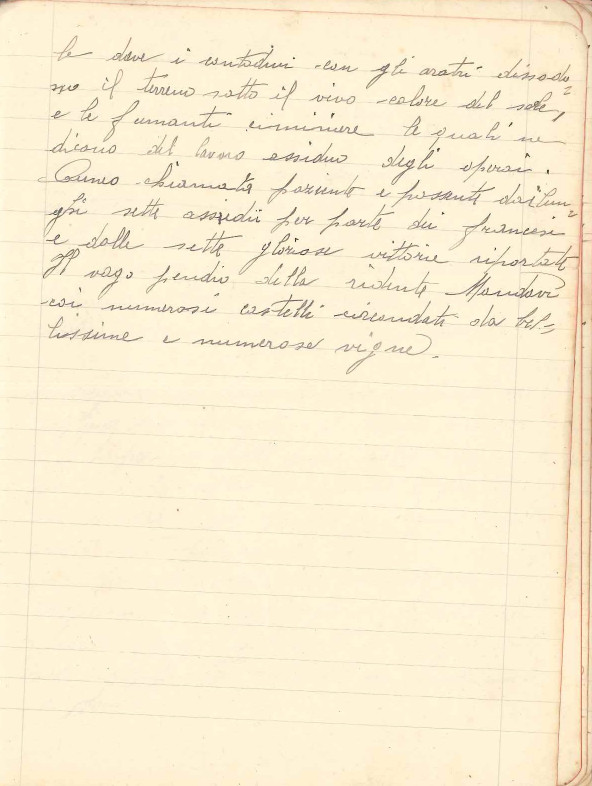 le dove i contadini con gli aratri dissoda=
no il terreno sotto il vivo calore del sole,
e le fumanti ciminiere le quali ne
dicono del lavoro assiduo degli operai.
Cuneo chiamata paziente e possente dai lun=
ghi sette assedii per parte dei francesi
e dalle sette gloriose vittorie riportate
Il vago pendio della ridente Mondovì
coi numerosi castelli circondati da bel=
lissime e numerose vigne.